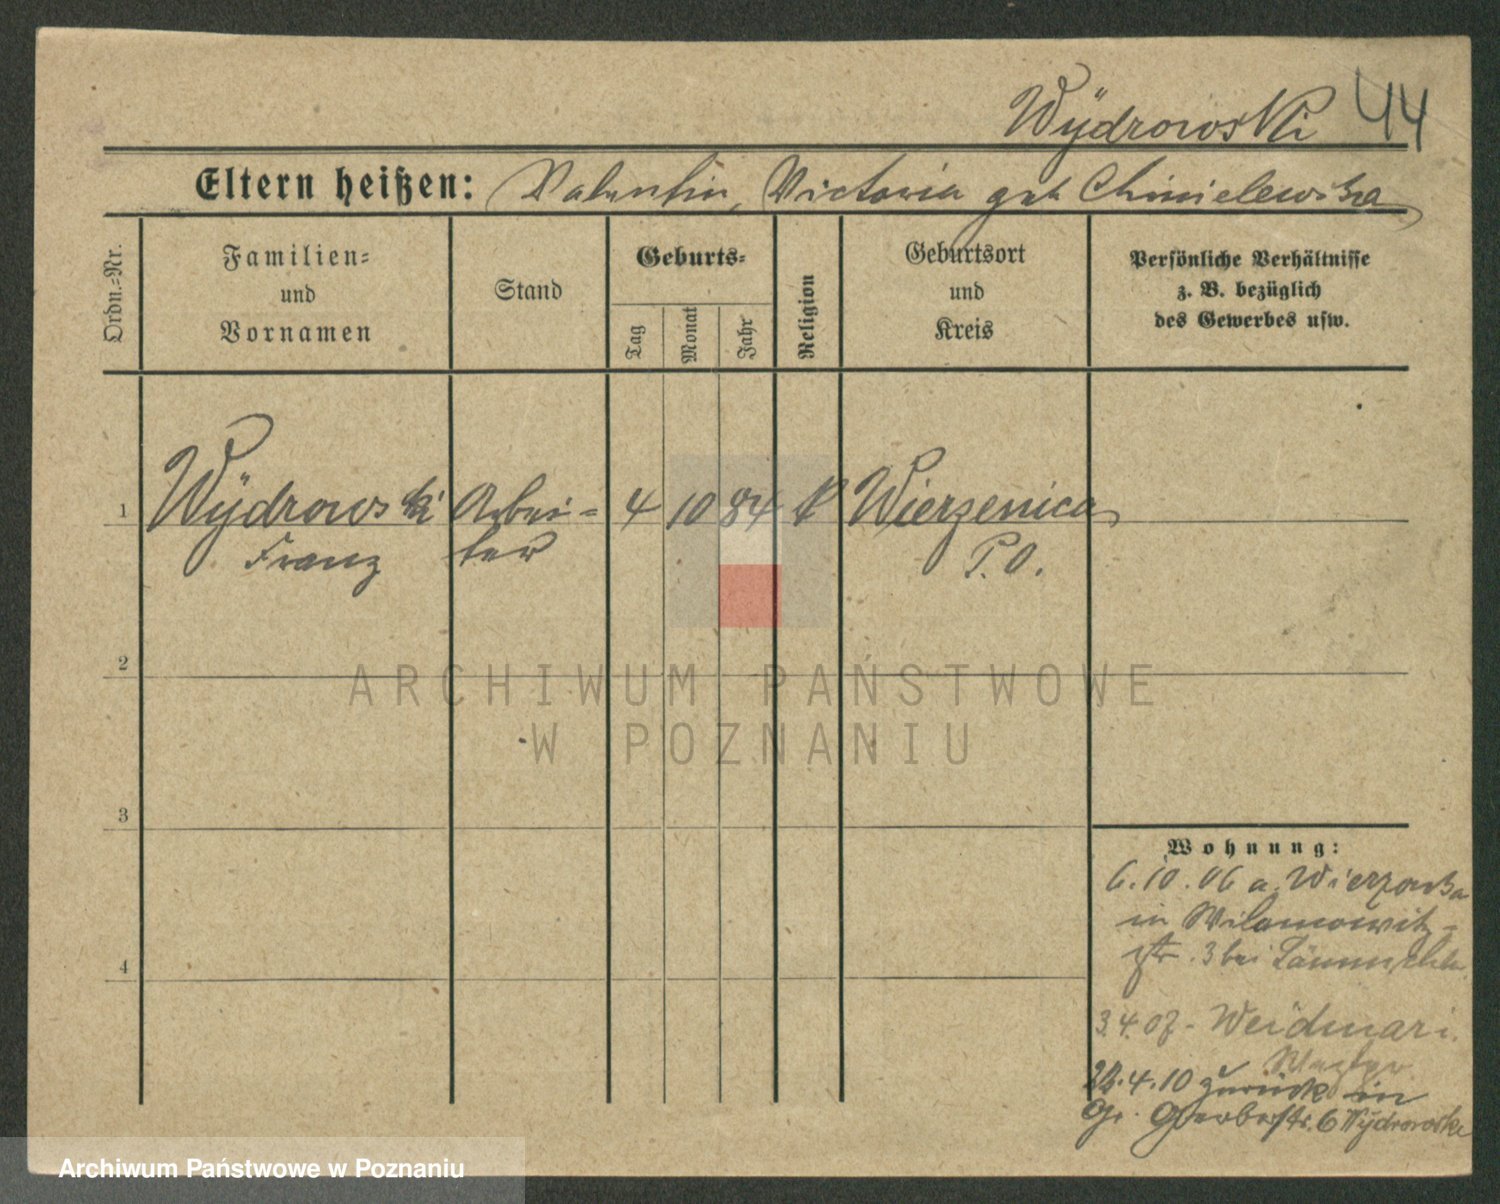 Wÿdrowski 44
Eltern heißen: Valentin, Victoria geb Chmielewska
Ordn.-Nr.
Familien-
und
Vornamen
Stand
Geburts-
Tag
Monat
Jahr
Religion
Geburtsort
und
Kreis
Persönliche Verhältnisse
z. B. bezüglich
des Gewerbes usw.
1 Wÿdrowski Arbei- 4 10 84 k Wierzenica
Franz ter P.O.
2
3
4
Wohnung:
6.10.06 a. Wierzonka
in Wilamowitz-
str. 3 bei
3.4.07-
22.4.10 zurück in
Gr. Gerberstr. 6 Wÿdrowski
ARCHIWUM PAŃSTWOWE
W POZNANIU
Archiwum Państwowe w Poznaniu